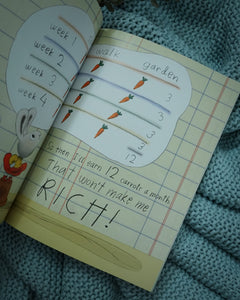 walk garden
week 1 3
week 2 3
week 3 3
week 4 3
12
So then I'll earn 12 carrots a month.
That won't make me
RICH!